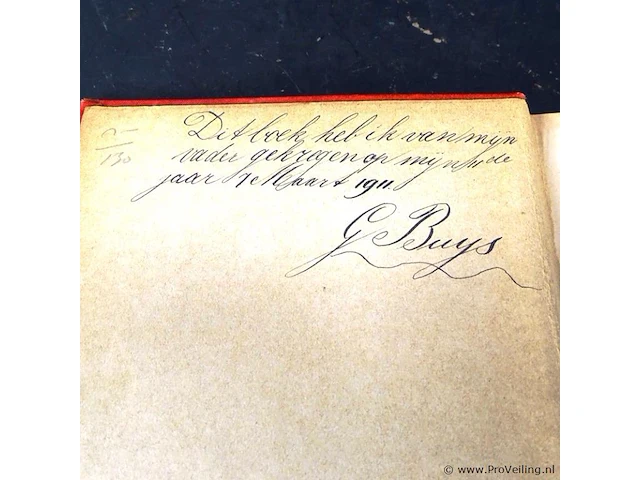 Dit boek heb ik van mijn
vader gekregen op mijn de
jaar 7 Maart 1911
G Buys
130
© www.ProVeiling.nl